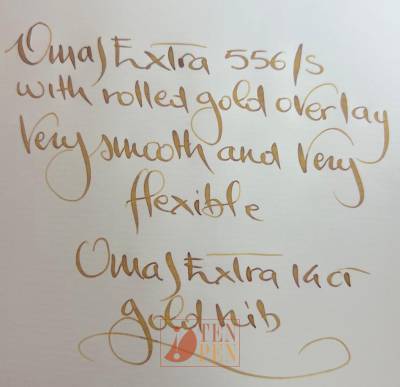 Omas Extra 556/s
with rolled gold overlay
Very smooth and very
flexible
Omas Extra 14 ct
gold nib
TEN
PEN